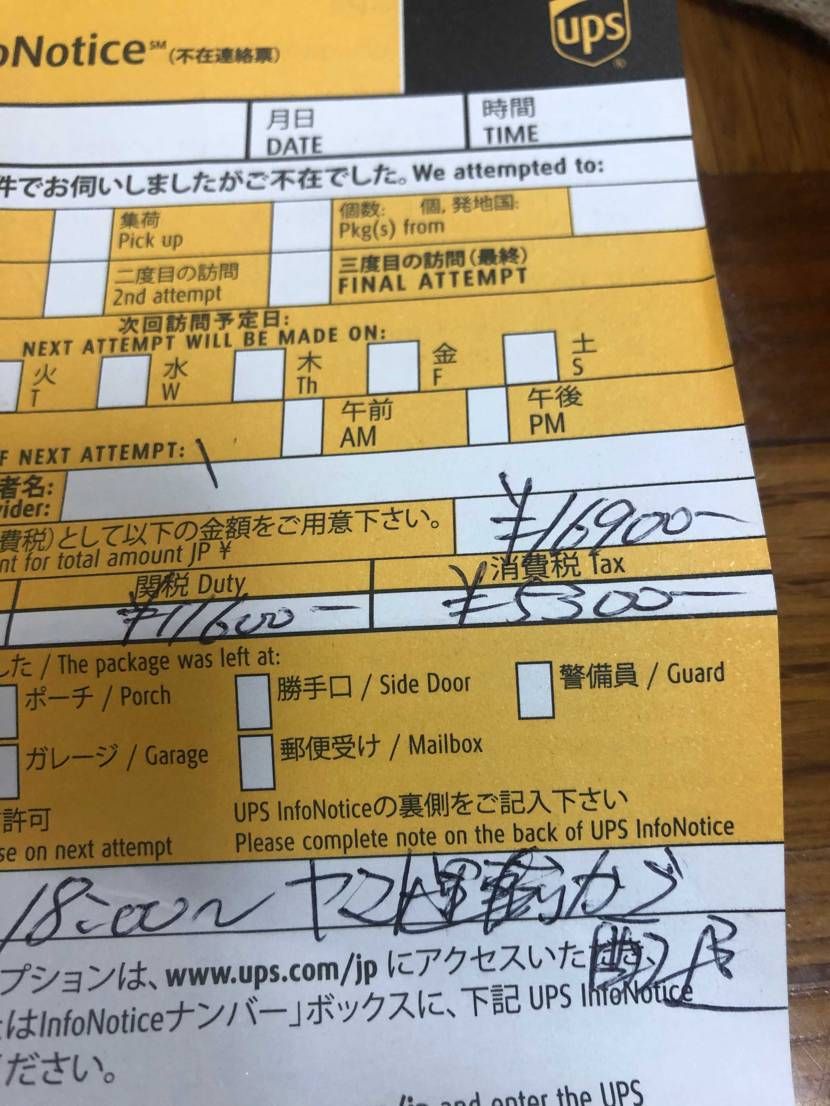 oNotice℠ (不在連絡票)
ups®
月日
DATE
時間
TIME
件でお伺いしましたがご不在でした。We attempted to:
集荷
Pick up
個数: 個, 発地国:
Pkg(s) from
二度目の訪問
2nd attempt
三度目の訪問(最終)
FINAL ATTEMPT
次回訪問予定日:
NEXT ATTEMPT WILL BE MADE ON:
火
T
水
W
木
Th
金
F
土
S
午前
AM
午後
PM
F NEXT ATTEMPT:
者名:
vider:
費税)として以下の金額をご用意下さい。
nt for total amount JP ¥
¥16900-
関税 Duty
消費税 Tax
¥11600-
¥5300-
した / The package was left at:
ポーチ / Porch
勝手口 / Side Door
警備員 / Guard
ガレージ / Garage
郵便受け / Mailbox
許可
se on next attempt
UPS InfoNoticeの裏側をご記入下さい
Please complete note on the back of UPS InfoNotice
18:00〜 ヤマト運輸が
プションは、www.ups.com/jp にアクセスいただき、
はInfoNoticeナンバー」ボックスに、下記 UPS InfoNotice
ください。
and enter the UPS